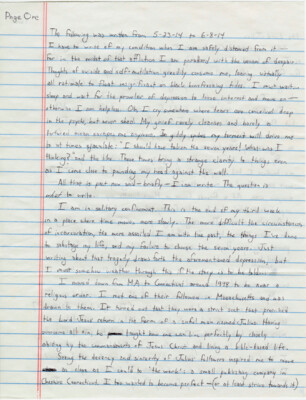 Page One
The following was written from 5-23-14 to 6-8-14
I have to write of my condition when I am safely distanced from it —
for in the midst of that affliction I am paralyzed with the venom of despair.
Thoughts of suicide and self-mutilation greedily consume me, leaving virtually
all rationale to float insignificant on black
sleep and wait for the provider of depression to lose interest and move on —
otherwise I am helpless. Oh, I may
to the psych; but never naked. My spirit rarely cleanses and barely is
between
to at times speculate: "I should have taken the seven years!, What was I
thinking?" and the like. These times bring a strange clarity to things even
as I come close to pounding my head against the wall.
All that is past now and — briefly — I can write. The question is
what to write.
I am in solitary confinement. This is the end of my third week
in a place where time moves more slowly. The more difficult the circumstances
of incarceration, the more assailed I am with the past, the things I've done
to sabotage my life, and my failure to change the seven years. Just
writing about that tragedy draws forth the aforementioned depression, but
I must somehow weather through this if the story is to be told.
I moved down from MA to Connecticut around 1998 to be near a
religious order. I met one of their followers in Massachusetts and was
drawn to them. It turned out that they were a strict sect that preached
the Lord Jesus return in the form of a sinful man named Julius. Having
overcome all sin, he taught him and won him perfectly by closely
abiding by the commandments of Jesus Christ and living a bible-based life.
Seeing the destiny and sincerity of Julius' followers inspired me to come
as close as I could to "the work": a small publishing company in
Cheshire, Connecticut. I too wanted to become perfect — (or at least strive towards it)